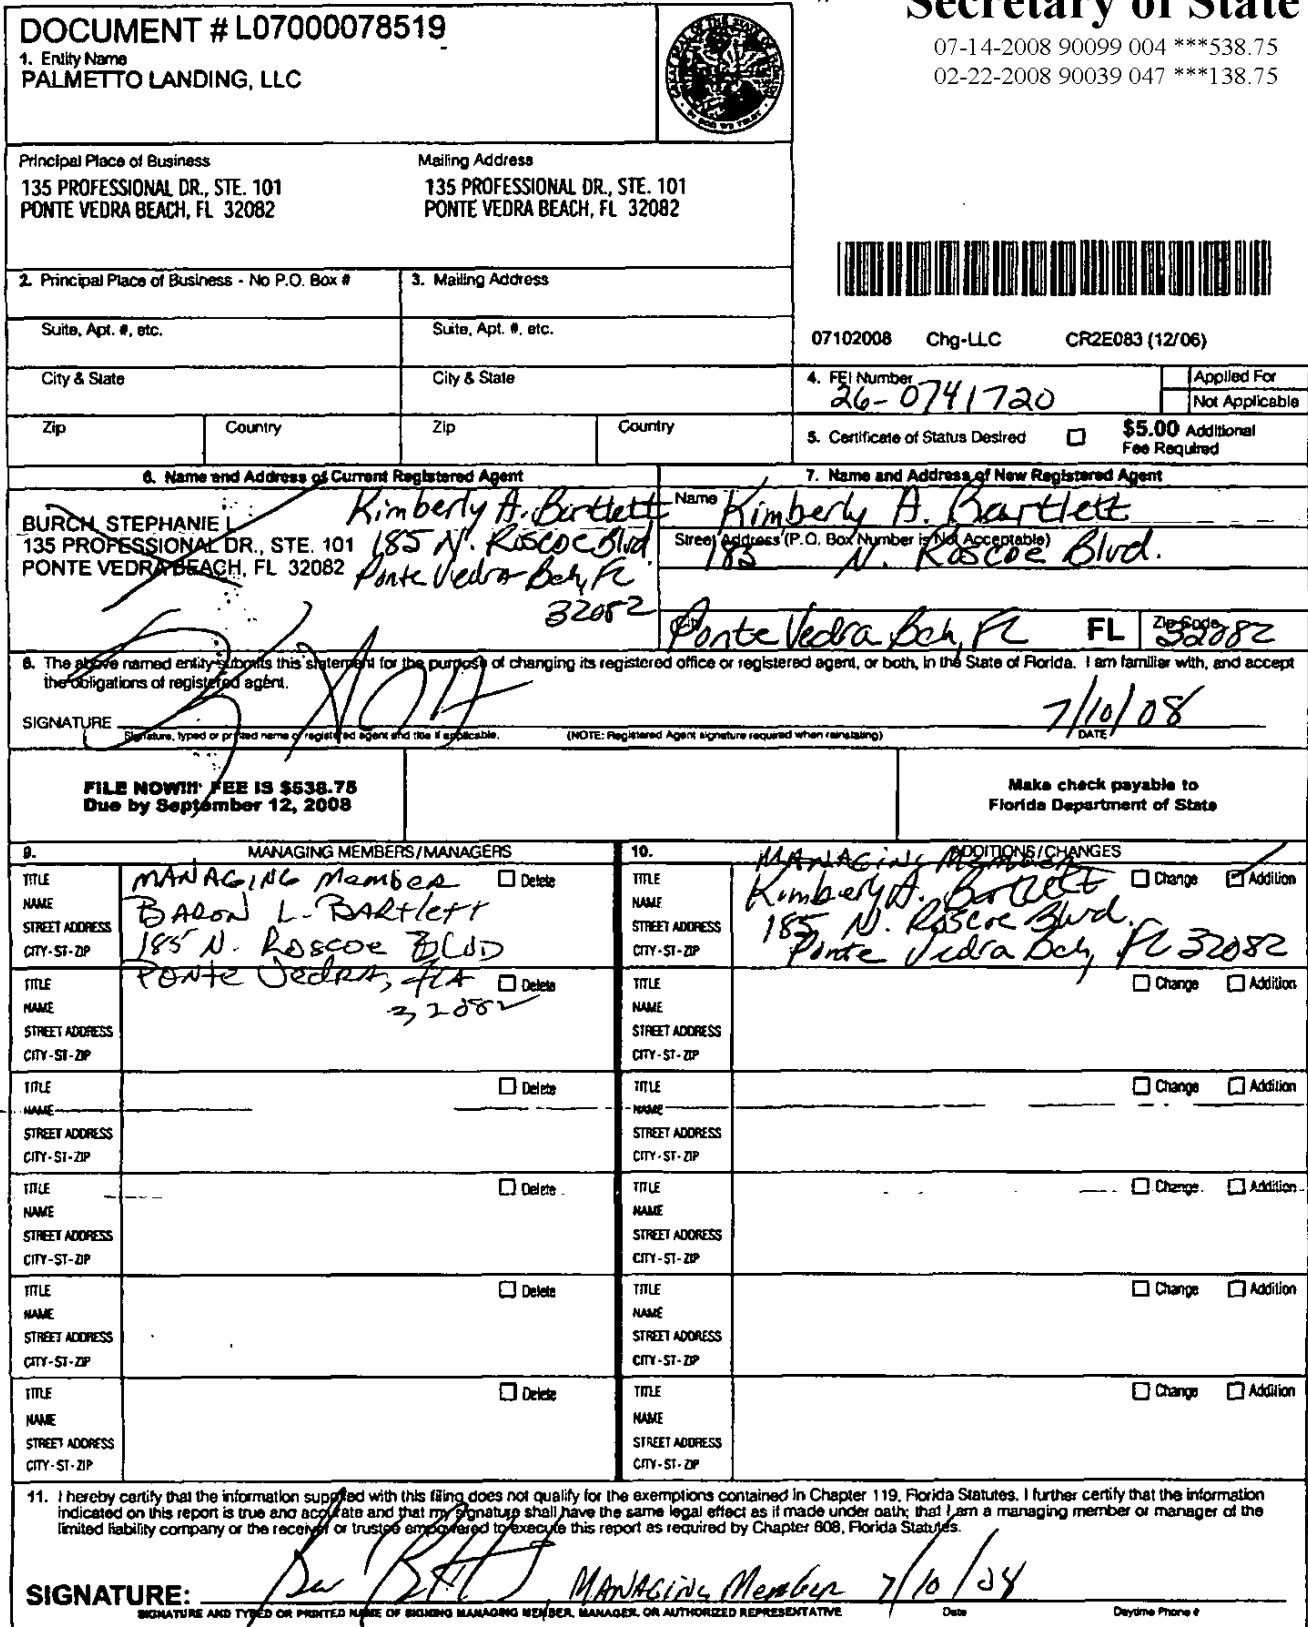 Secretary of State
07-14-2008 90099 004 ***538.75
02-22-2008 90039 047 ***138.75
DOCUMENT # L07000078519
1. Entity Name
PALMETTO LANDING, LLC
Principal Place of Business
135 PROFESSIONAL DR., STE. 101
PONTE VEDRA BEACH, FL 32082
Mailing Address
135 PROFESSIONAL DR., STE. 101
PONTE VEDRA BEACH, FL 32082
2. Principal Place of Business - No P.O. Box #
3. Mailing Address
Suite, Apt. #, etc.
Suite, Apt. #, etc.
07102008 Chg-LLC CR2E083 (12/06)
City & State
City & State
4. FEI Number
26-0741720
Applied For
Not Applicable
Zip
Country
Zip
Country
5. Certificate of Status Desired
$5.00 Additional
Fee Required
6. Name and Address of Current Registered Agent
BURCH, STEPHANIE L
135 PROFESSIONAL DR., STE. 101
PONTE VEDRA BEACH, FL 32082
Kimberly A. Bartlett
185 N. Roscoe Blvd.
Ponte Vedra Bch, FL
32082
7. Name and Address of New Registered Agent
Name Kimberly A. Bartlett
Street Address (P.O. Box Number is Not Acceptable)
185 N. Roscoe Blvd.
City
Ponte Vedra Bch, FL FL Zip Code 32082
8. The above named entity submits this statement for the purpose of changing its registered office or registered agent, or both, in the State of Florida. I am familiar with, and accept
the obligations of registered agent.
SIGNATURE
7/10/08
Signature, typed or printed name of registered agent and title if applicable. (NOTE: Registered Agent signature required when reinstating) DATE
FILE NOW!!! FEE IS $538.75
Due by September 12, 2008
Make check payable to
Florida Department of State
9. MANAGING MEMBERS/MANAGERS
10. ADDITIONS/CHANGES
TITLE MANAGING Member Delete
NAME BARON L. BARtlett
STREET ADDRESS 185 N. Roscoe BLVD
CITY-ST-ZIP Ponte Vedra, FLA
32082
TITLE MANAGING MEMBER Change Addition
NAME Kimberly A. Bartlett
STREET ADDRESS 185 N. Roscoe Blvd.
CITY-ST-ZIP Ponte Vedra Bch, FL 32082
TITLE Delete
NAME
STREET ADDRESS
CITY-ST-ZIP
TITLE Change Addition
NAME
STREET ADDRESS
CITY-ST-ZIP
TITLE Delete
NAME
STREET ADDRESS
CITY-ST-ZIP
TITLE Change Addition
NAME
STREET ADDRESS
CITY-ST-ZIP
TITLE Delete
NAME
STREET ADDRESS
CITY-ST-ZIP
TITLE Change Addition
NAME
STREET ADDRESS
CITY-ST-ZIP
TITLE Delete
NAME
STREET ADDRESS
CITY-ST-ZIP
TITLE Change Addition
NAME
STREET ADDRESS
CITY-ST-ZIP
TITLE Delete
NAME
STREET ADDRESS
CITY-ST-ZIP
TITLE Change Addition
NAME
STREET ADDRESS
CITY-ST-ZIP
11. I hereby certify that the information supplied with this filing does not qualify for the exemptions contained in Chapter 119, Florida Statutes. I further certify that the information
indicated on this report is true and accurate and that my signature shall have the same legal effect as if made under oath; that I am a managing member or manager of the
limited liability company or the receiver or trustee empowered to execute this report as required by Chapter 608, Florida Statutes.
SIGNATURE: MANAGING Member 7/10/08
SIGNATURE AND TYPED OR PRINTED NAME OF SIGNING MANAGING MEMBER, MANAGER, OR AUTHORIZED REPRESENTATIVE Date Daytime Phone #